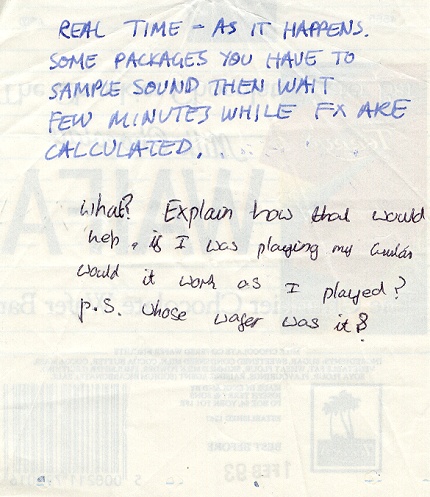 REAL TIME – AS IT HAPPENS.
SOME PACKAGES YOU HAVE TO
SAMPLE SOUND THEN WAIT
FEW MINUTES WHILE FX ARE
CALCULATED.
What? Explain how that would
help, if I was playing my Guitar
would it work as I played?
p.s. whose wafer was it?
BEST BEFORE
1 FEB 93